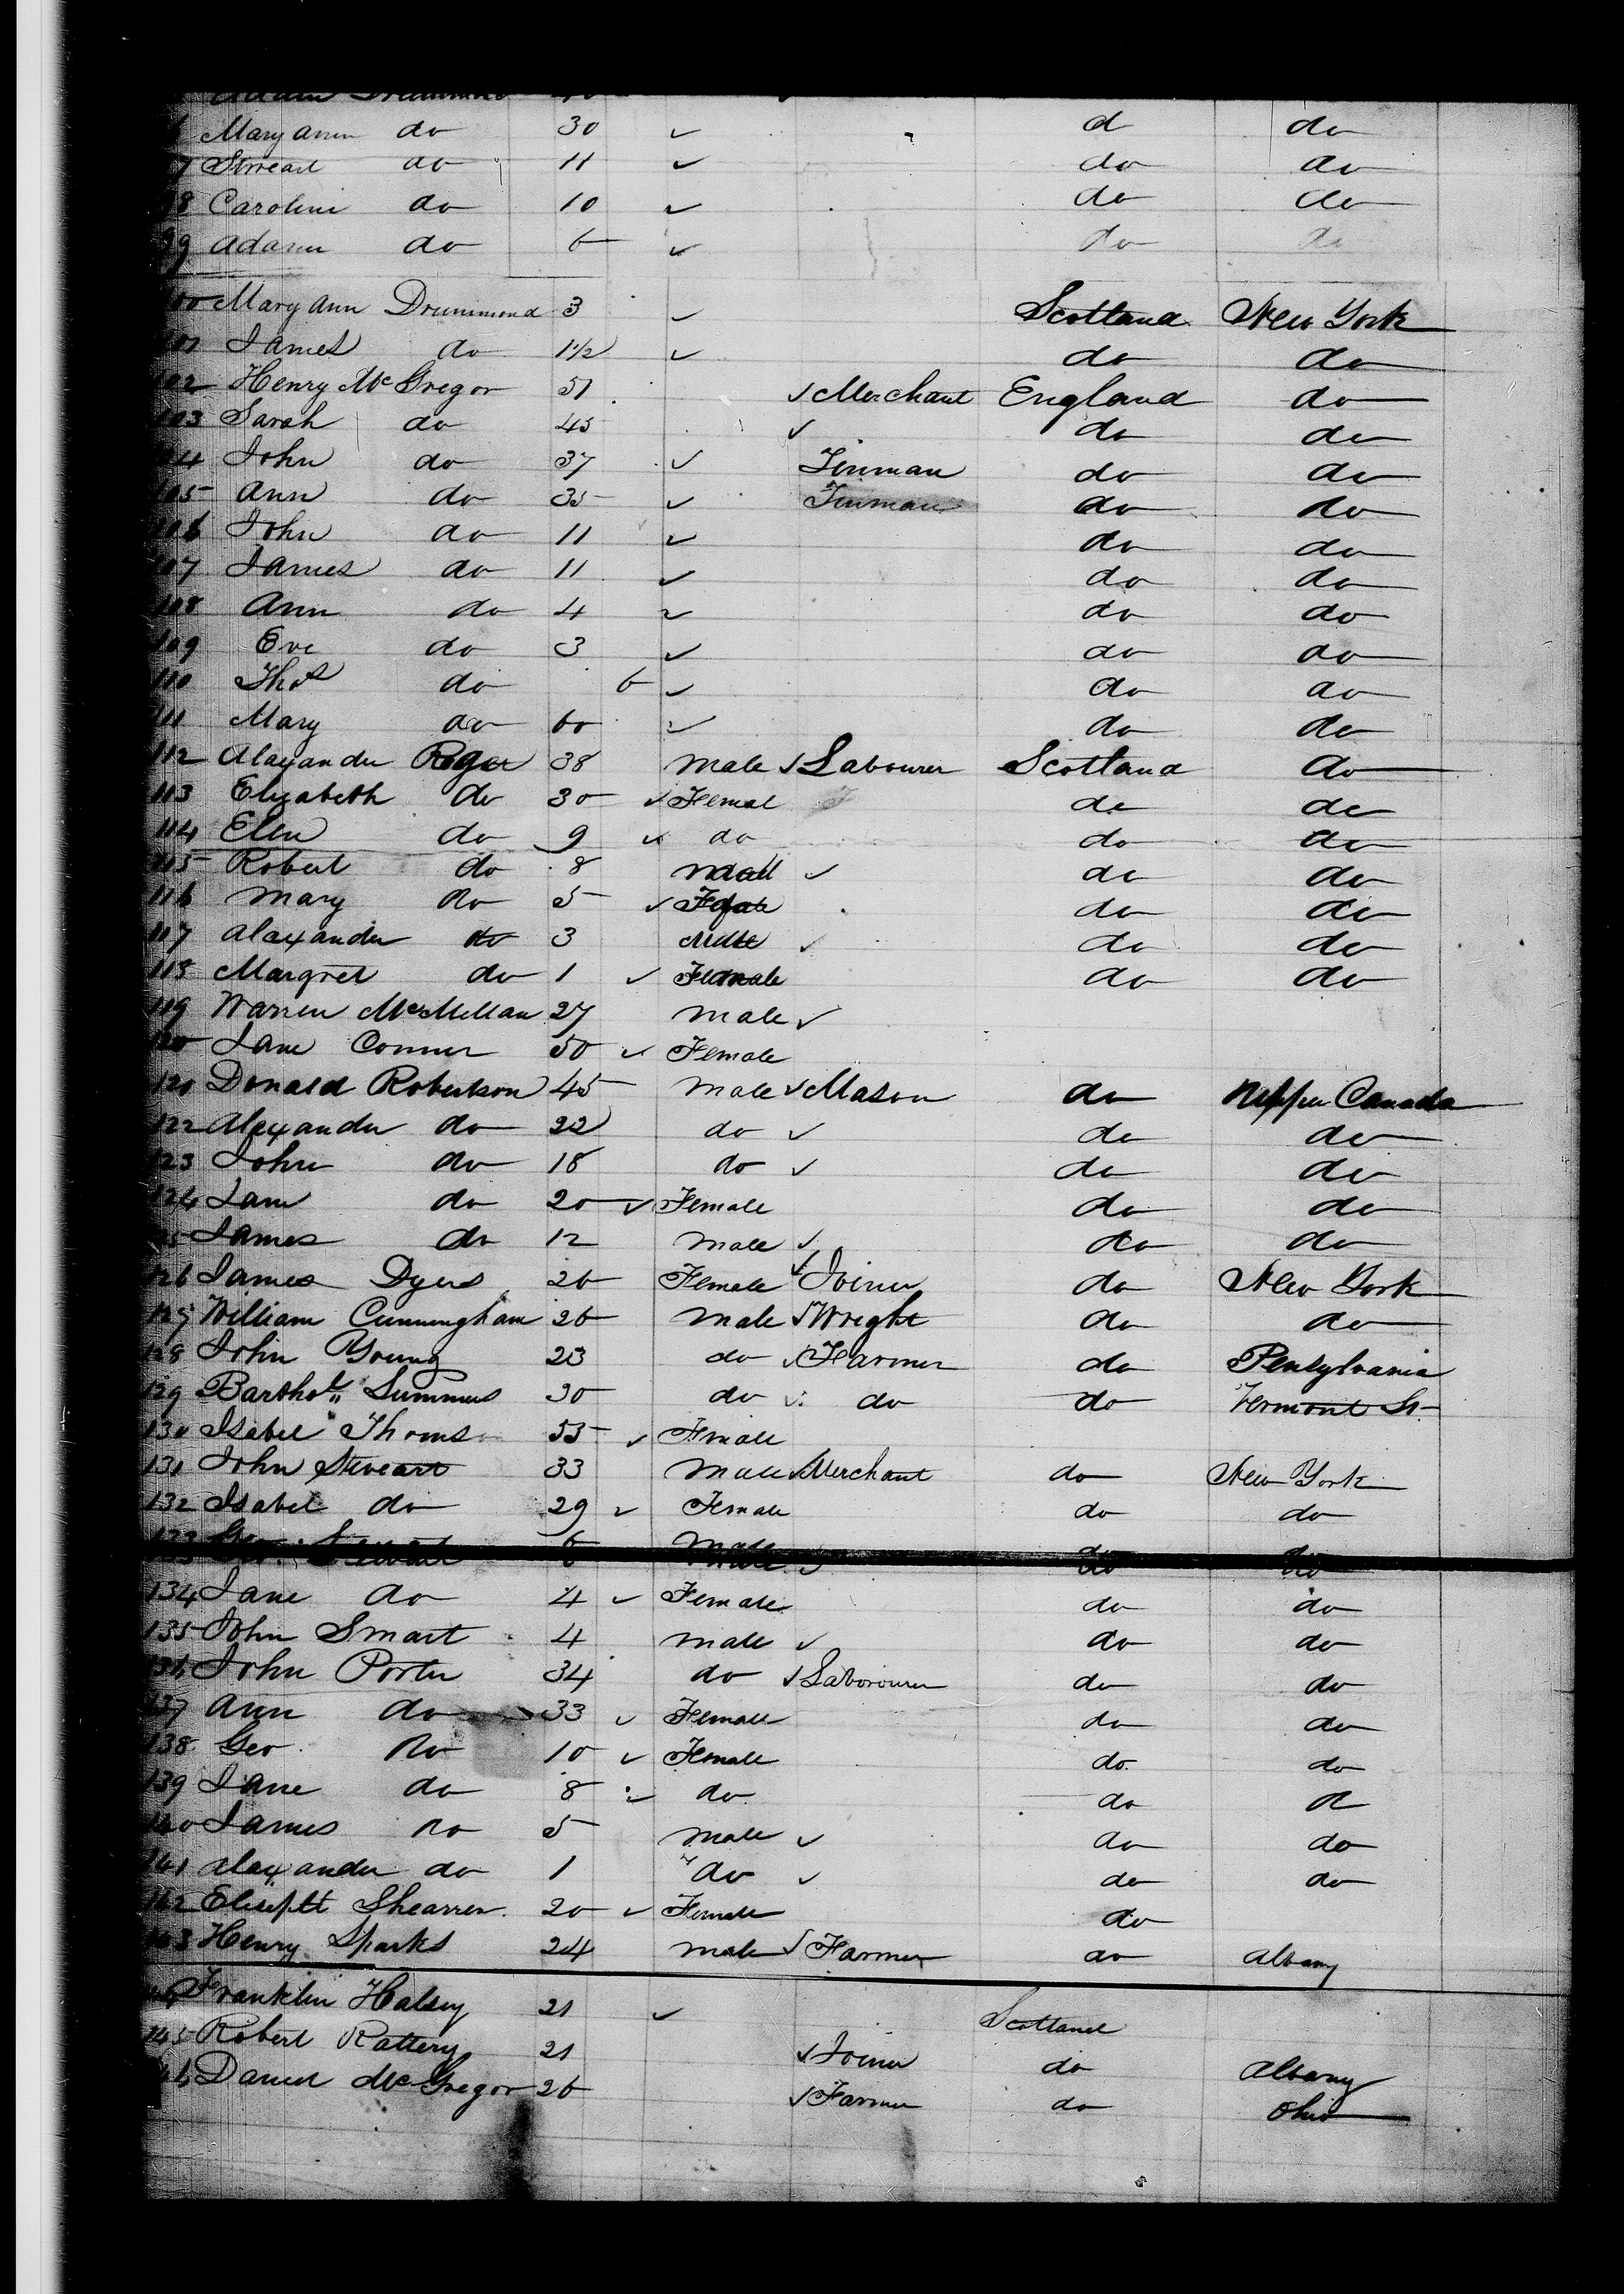 Mary ann do 30 d do
Steweart do 11 do do
98 Caroline do 10 do do
99 Adam do 6 do do
100 Mary Ann Drummond 3 Scotland New York
101 James do 1 1/2 do do
102 Henry McGregor 51 Merchant England do
103 Sarah do 45 do do
104 John do 37 Tinman do do
105 Ann do 35 Tinman do do
106 John do 11 do do
107 James do 11 do do
108 Ann do 4 do do
109 Eve do 3 do do
110 Thos do 6 do do
111 Mary do 60 do do
112 Alaxander Roger 38 Male Labourer Scotland do
113 Elizabeth do 30 Femal do do
114 Elen do 9 do do do
115 Robert do 8 do do
116 Mary do 5 do do
117 Alaxander do 3 Male do do
118 Margret do 1 Female do do
119 Warren McMellan 27 Male
120 Jane Conner 50 Female
120 Donald Robertson 45 Male Mason do Upper Canada
122 Alaxander do 22 do do do
123 John do 18 do do do
124 Jane do 20 Female do do
125 James do 12 Male do do
126 James Dyers 26 Female Joiner do New York
127 William Cunningham 26 Male Wright do do
128 John Young 23 do Farmer do Pensylvania
129 Barthol" Summers 30 do do do Vermont St
130 Isabel Thoms 55 Female
131 John Steveart 33 Male Merchant do New York
132 Isabel do 29 Female do do
133 Geo. Stewart 6 Male do do
134 Jane do 4 Female do do
135 John Smart 4 Male do do
136 John Porter 34 do Labourer do do
137 Ann do 33 Female do do
138 Geo do 10 Female do do
139 Jane do 8 do do d
140 James do 5 Male do do
141 Alaxander do 1 do do do
142 Shearrer 20 Female do
143 Henry Sparks 24 Male Farmer do Albany
144 Franklin Halsey 21 Scotland
145 Robert Rattery 21 Joiner do Albany
146 Daniel McGregor 26 Farmer do Ohio